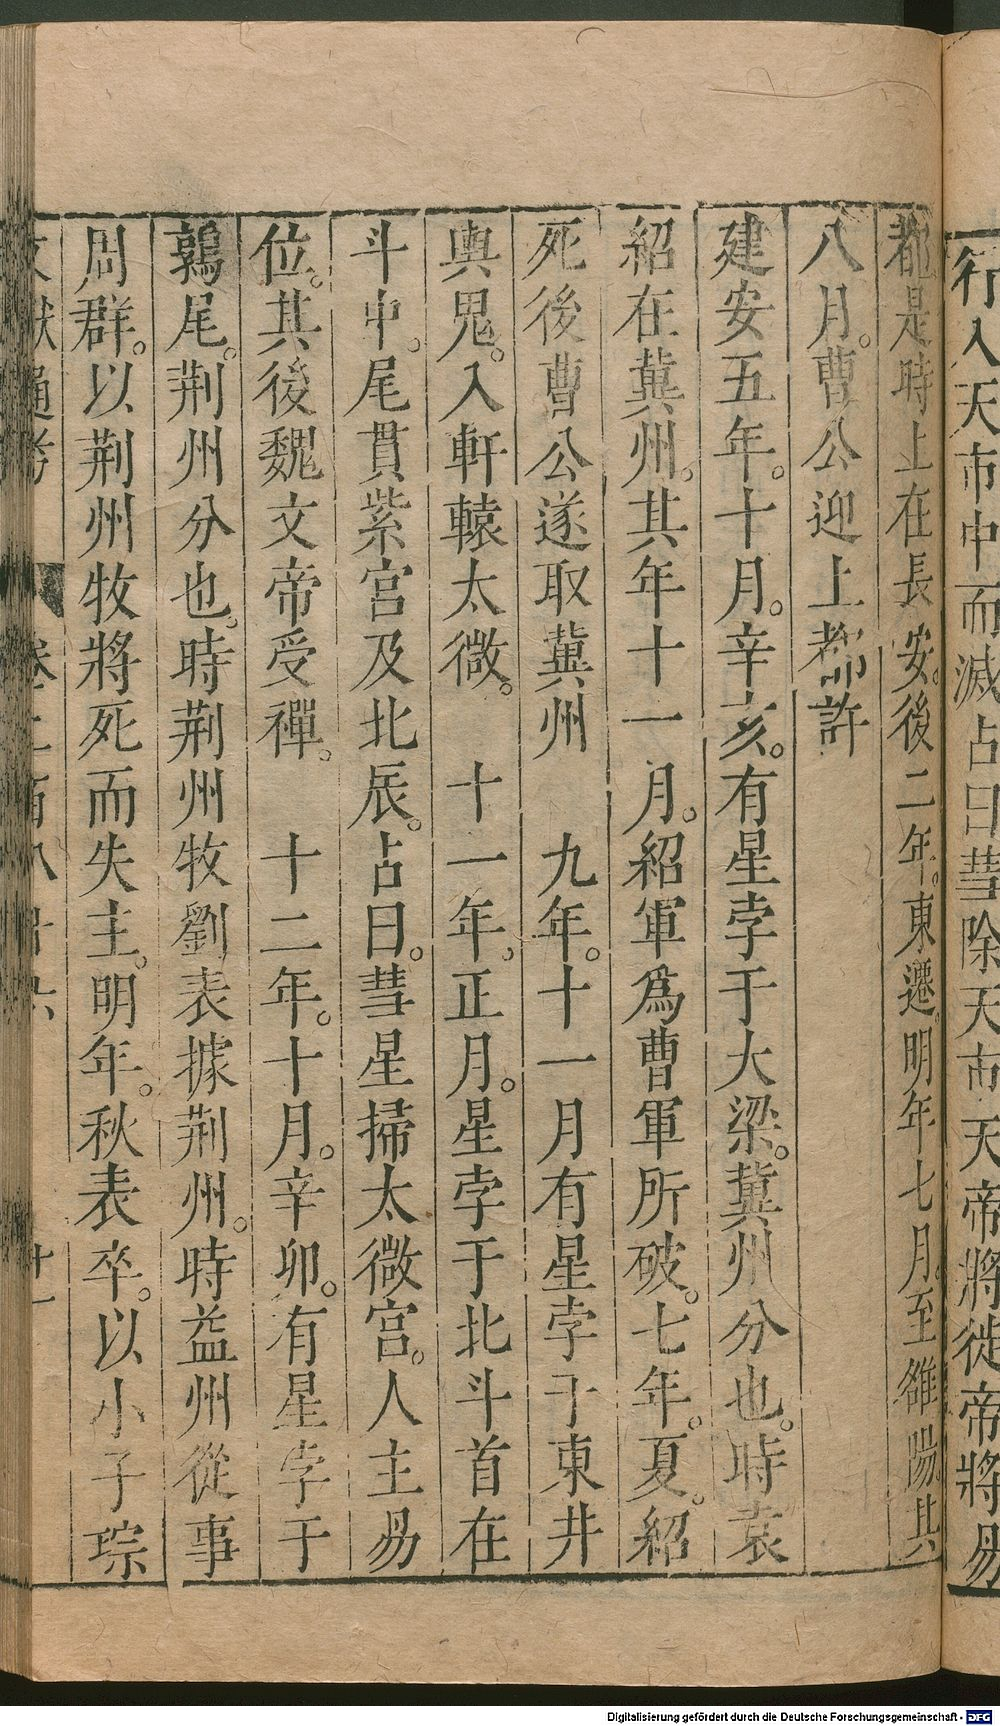 行入天市中而滅占曰彗除天市天帝將徙帝將易
都是時上在長安。後二年。東遷。明年七月。至雒陽。其
八月。曹公迎上都許
建安五年。十月。辛亥。有星孛于大梁。冀州分也。時袁
紹在冀州。其年十一月。紹軍爲曹軍所破。七年。夏。紹
死後曹公遂取冀州　九年。十一月有星孛于東井
輿鬼。入軒轅太微。　十一年。正月。星孛于北斗首在
斗中。尾貫紫宮及北辰。占曰。彗星掃太微宮。人主易
位。其後魏文帝受禪。　十二年。十月。辛卯。有星孛于
鶉尾。荆州分也。時荆州牧劉表據荆州。時益州從事
周群。以荆州牧將死而失主。明年。秋表卒。以小子琮
文獻通考 卷二百八十六 十一
Digitalisierung gefördert durch die Deutsche Forschungsgemeinschaft - DFG